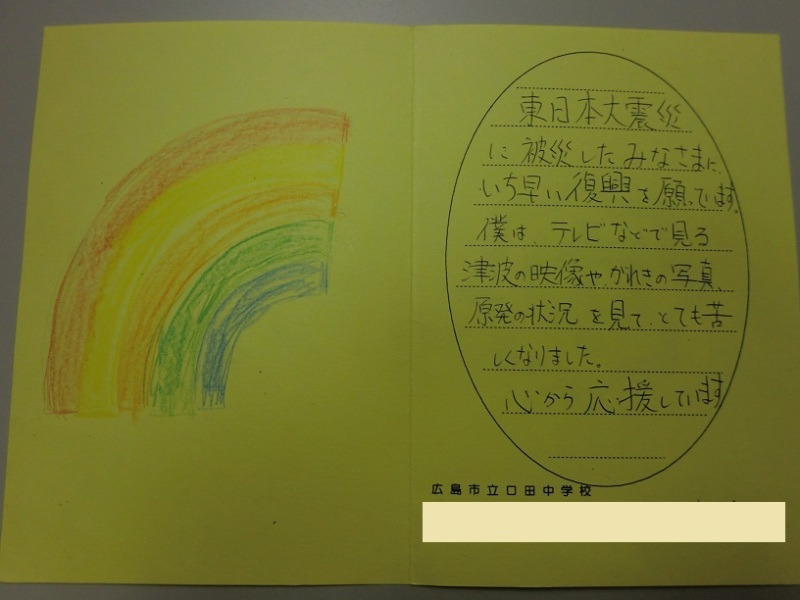 東日本大震災
に被災したみなさまに、
いち早い復興を願っています。
僕は、テレビなどで見る
津波の映像や、がれきの写真、
原発の状況を見て、とても苦
しくなりました。
心から応援しています
広島市立口田中学校